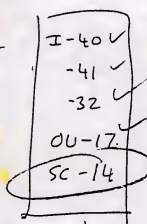 I-40 ✓
-41 ✓
-32 ✓
OU-17. ✓
SC-14